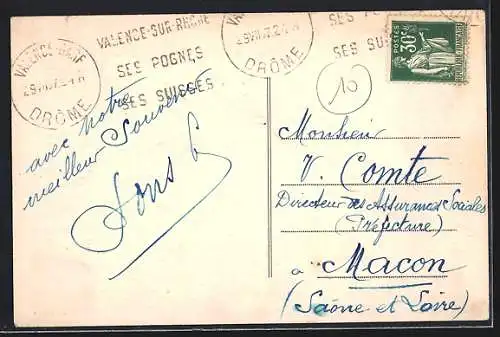 VALENCE-GARE
DRÔME
VALENCE-SUR-RHÔNE
SES POGNES
SES SUISSES
DRÔME
SES
SES SU
POSTES
30c
10
avec notre
meilleur Souvenir
Monsieur
V. Comte
Directeur des Assurances Sociales
(Préfecture)
à Macon
(Saône et Loire)